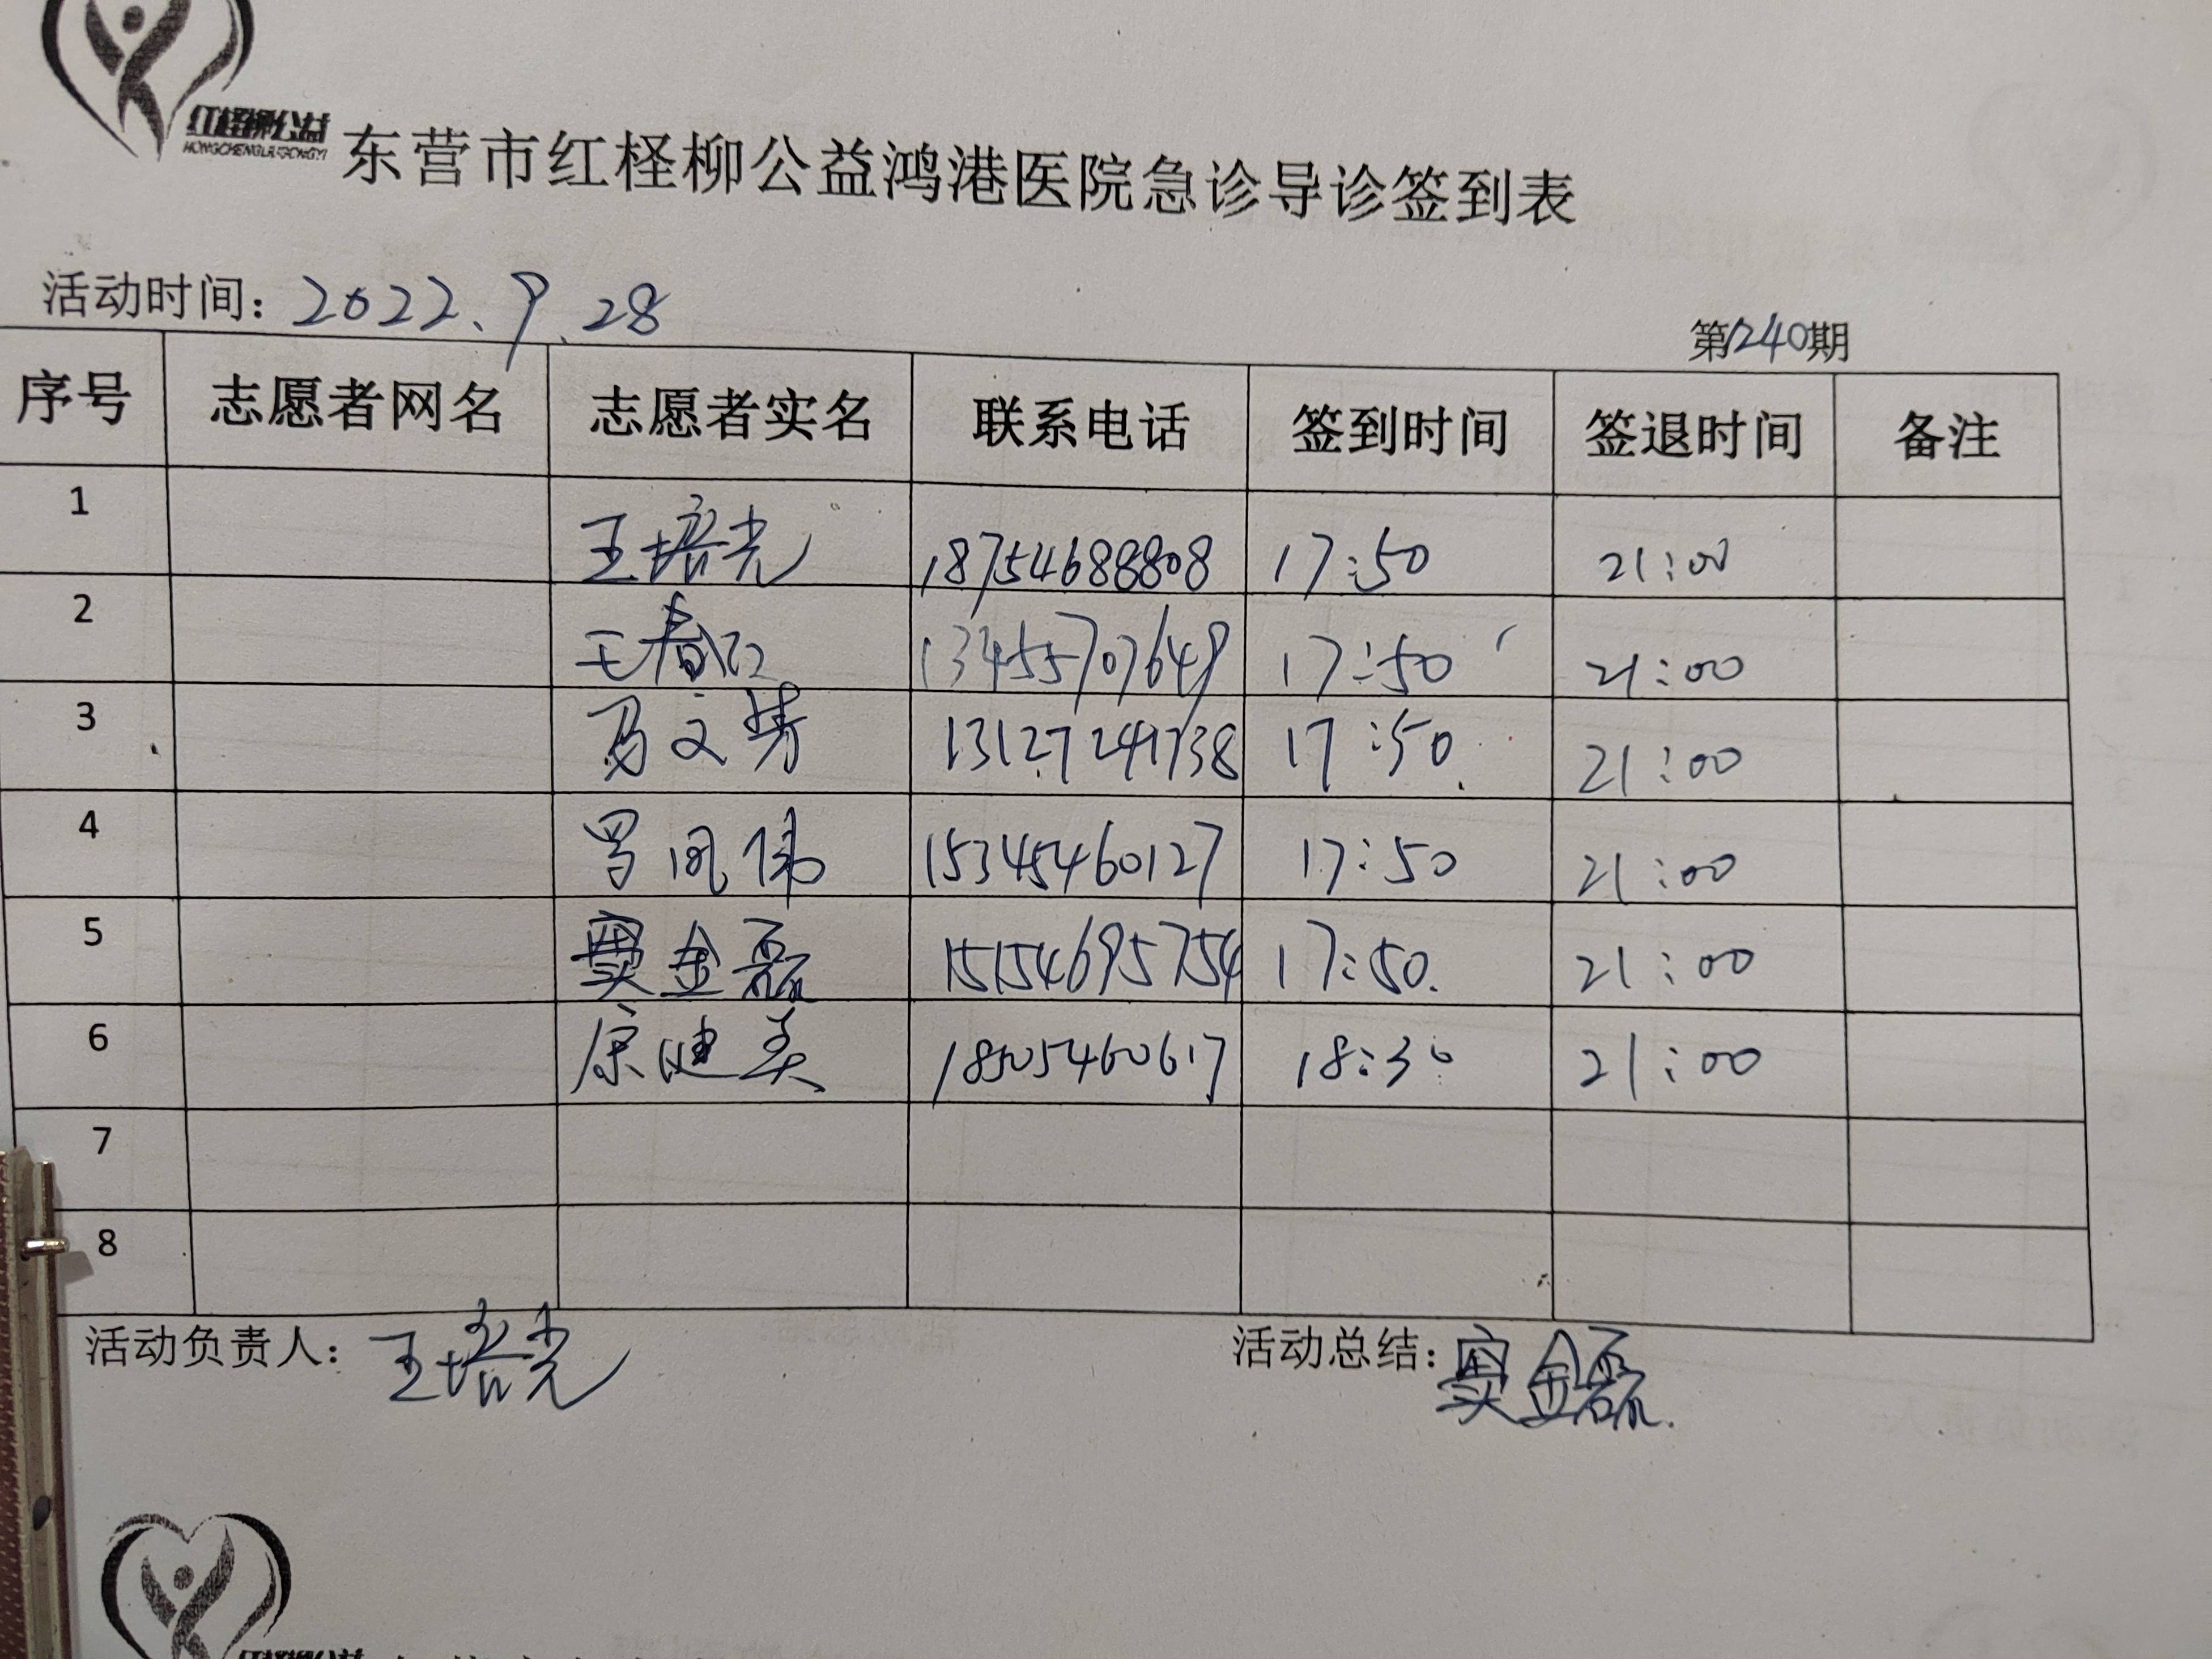 红柽柳公益
HONGCHENGLIUGONGYI
东营市红柽柳公益鸿港医院急诊导诊签到表
活动时间: 2022.9.28
第1240期
序号 志愿者网名 志愿者实名 联系电话 签到时间 签退时间 备注
1 王培光 18754688808 17:50 21:00
2 王春江 13455707649 17:50 21:00
3 马文芳 13127241738 17:50. 21:00
4 罗凤伟 15345460127 17:50 21:00
5 窦金磊 15154695754 17:50. 21:00
6 康健美 18505460617 18:30 21:00
7
8
活动负责人: 王培光 活动总结: 窦金磊.
红柽柳公益